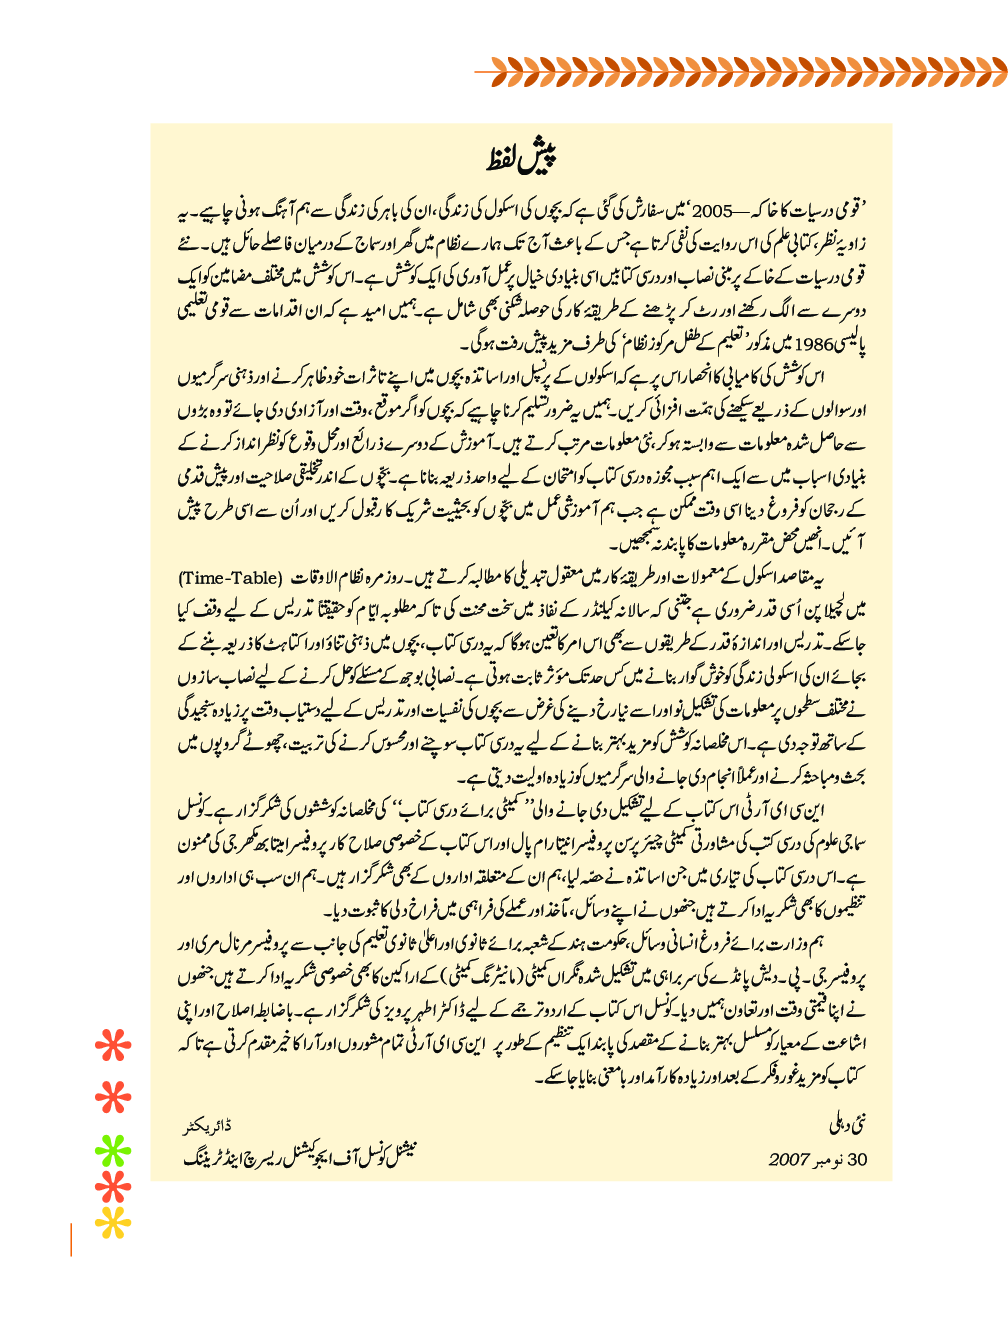 پیش لفظ
’قومی درسیات کا خاکہ—2005‘ میں سفارش کی گئی ہے کہ بچوں کی اسکول کی زندگی، ان کی باہر کی زندگی سے ہم آہنگ ہونی چاہیے۔ یہ
زاویۂ نظر، کتابی علم کی اس روایت کی نفی کرتا ہے جس کے باعث آج تک ہمارے نظام میں گھر اور سماج کے درمیان فاصلے حائل ہیں۔ نئے
قومی درسیات کے خاکے پر مبنی نصاب اور درسی کتابیں اسی بنیادی خیال پر عمل آوری کی ایک کوشش ہے۔ اس کوشش میں مختلف مضامین کو ایک
دوسرے سے الگ رکھنے اور رٹ کر پڑھنے کے طریقۂ کار کی حوصلہ شکنی بھی شامل ہے۔ ہمیں امید ہے کہ ان اقدامات سے قومی تعلیمی
پالیسی 1986 میں مذکور ’تعلیم کے طفل مرکوز نظام‘ کی طرف مزید پیش رفت ہوگی۔
اس کوشش کی کامیابی کا انحصار اس پر ہے کہ اسکولوں کے پرنسپل اور اساتذہ بچوں میں اپنے تاثرات خود ظاہر کرنے اور ذہنی سرگرمیوں
اور سوالوں کے ذریعے سیکھنے کی ہمّت افزائی کریں۔ ہمیں یہ ضرور تسلیم کرنا چاہیے کہ بچوں کو اگر موقع، وقت اور آزادی دی جائے تو وہ بڑوں
سے حاصل شدہ معلومات سے وابستہ ہوکر، نئی معلومات مرتب کرتے ہیں۔ آموزش کے دوسرے ذرائع اور محلِ وقوع کو نظر انداز کرنے کے
بنیادی اسباب میں سے ایک اہم سبب مجوزہ درسی کتاب کو امتحان کے لیے واحد ذریعہ بنانا ہے۔ بچّوں کے اندر تخلیقی صلاحیت اور پیش قدمی
کے رجحان کو فروغ دینا اسی وقت ممکن ہے جب ہم آموزشی عمل میں بچّوں کو بحیثیت شریک کار قبول کریں اور اُن سے اسی طرح پیش
آئیں۔ انھیں محض مقررہ معلومات کا پابند نہ سمجھیں۔
یہ مقاصد اسکول کے معمولات اور طریقۂ کار میں معقول تبدیلی کا مطالبہ کرتے ہیں۔ روزمرہ نظام الاوقات (Time-Table)
میں لچیلا پن اُسی قدر ضروری ہے جتنی کہ سالانہ کیلنڈر کے نفاذ میں سخت محنت کی تاکہ مطلوبہ ایّام کو حقیقتاً تدریس کے لیے وقف کیا
جاسکے۔ تدریس اور اندازۂ قدر کے طریقوں سے بھی اس امر کا تعین ہوگا کہ یہ درسی کتاب، بچوں میں ذہنی تناؤ اور اکتاہٹ کا ذریعہ بننے کے
بجائے ان کی اسکولی زندگی کو خوش گوار بنانے میں کس حد تک مؤثر ثابت ہوتی ہے۔ نصابی بوجھ کے مسئلے کو حل کرنے کے لیے نصاب سازوں
نے مختلف سطحوں پر معلومات کی تشکیلِ نو اور اسے نیا رخ دینے کی غرض سے بچوں کی نفسیات اور تدریس کے لیے دستیاب وقت پر زیادہ سنجیدگی
کے ساتھ توجہ دی ہے۔ اس مخلصانہ کوشش کو مزید بہتر بنانے کے لیے یہ درسی کتاب سوچنے اور محسوس کرنے کی تربیت، چھوٹے گروپوں میں
بحث و مباحثہ کرنے اور عملاً انجام دی جانے والی سرگرمیوں کو زیادہ اولیت دیتی ہے۔
این سی ای آر ٹی اس کتاب کے لیے تشکیل دی جانے والی ”کمیٹی برائے درسی کتاب“ کی مخلصانہ کوششوں کی شکر گزار ہے۔ کونسل
سماجی علوم کی درسی کتب کی مشاورتی کمیٹی چیئر پرسن پروفیسر انیتا رام پال اور اس کتاب کے خصوصی صلاح کار پروفیسر امیتابھ مکھرجی کی ممنون
ہے۔ اس درسی کتاب کی تیاری میں جن اساتذہ نے حصّہ لیا، ہم ان کے متعلقہ اداروں کے بھی شکر گزار ہیں۔ ہم ان سب ہی اداروں اور
تنظیموں کا بھی شکریہ ادا کرتے ہیں جنھوں نے اپنے وسائل، مآخذ اور عملے کی فراہمی میں فراخ دلی کا ثبوت دیا۔
ہم وزارت برائے فروغ انسانی وسائل، حکومت ہند کے شعبہ برائے ثانوی اور اعلیٰ ثانوی تعلیم کی جانب سے پروفیسر مرنال مری اور
پروفیسر جی۔ پی۔ دیش پانڈے کی سربراہی میں تشکیل شدہ نگراں کمیٹی (مانیٹرنگ کمیٹی) کے اراکین کا بھی خصوصی شکریہ ادا کرتے ہیں جنھوں
نے اپنا قیمتی وقت اور تعاون ہمیں دیا۔ کونسل اس کتاب کے اردو ترجمے کے لیے ڈاکٹر اطہر پرویز کی شکر گزار ہے۔ باضابطہ اصلاح اور اپنی
اشاعت کے معیار کو مسلسل بہتر بنانے کے مقصد کی پابند ایک تنظیم کے طور پر این سی ای آر ٹی تمام مشوروں اور آرا کا خیر مقدم کرتی ہے تاکہ
کتاب کو مزید غور و فکر کے بعد اور زیادہ کارآمد اور بامعنی بنایا جاسکے۔
نئی دہلی
ڈائریکٹر
30 نومبر 2007
نیشنل کونسل آف ایجوکیشنل ریسرچ اینڈ ٹریننگ